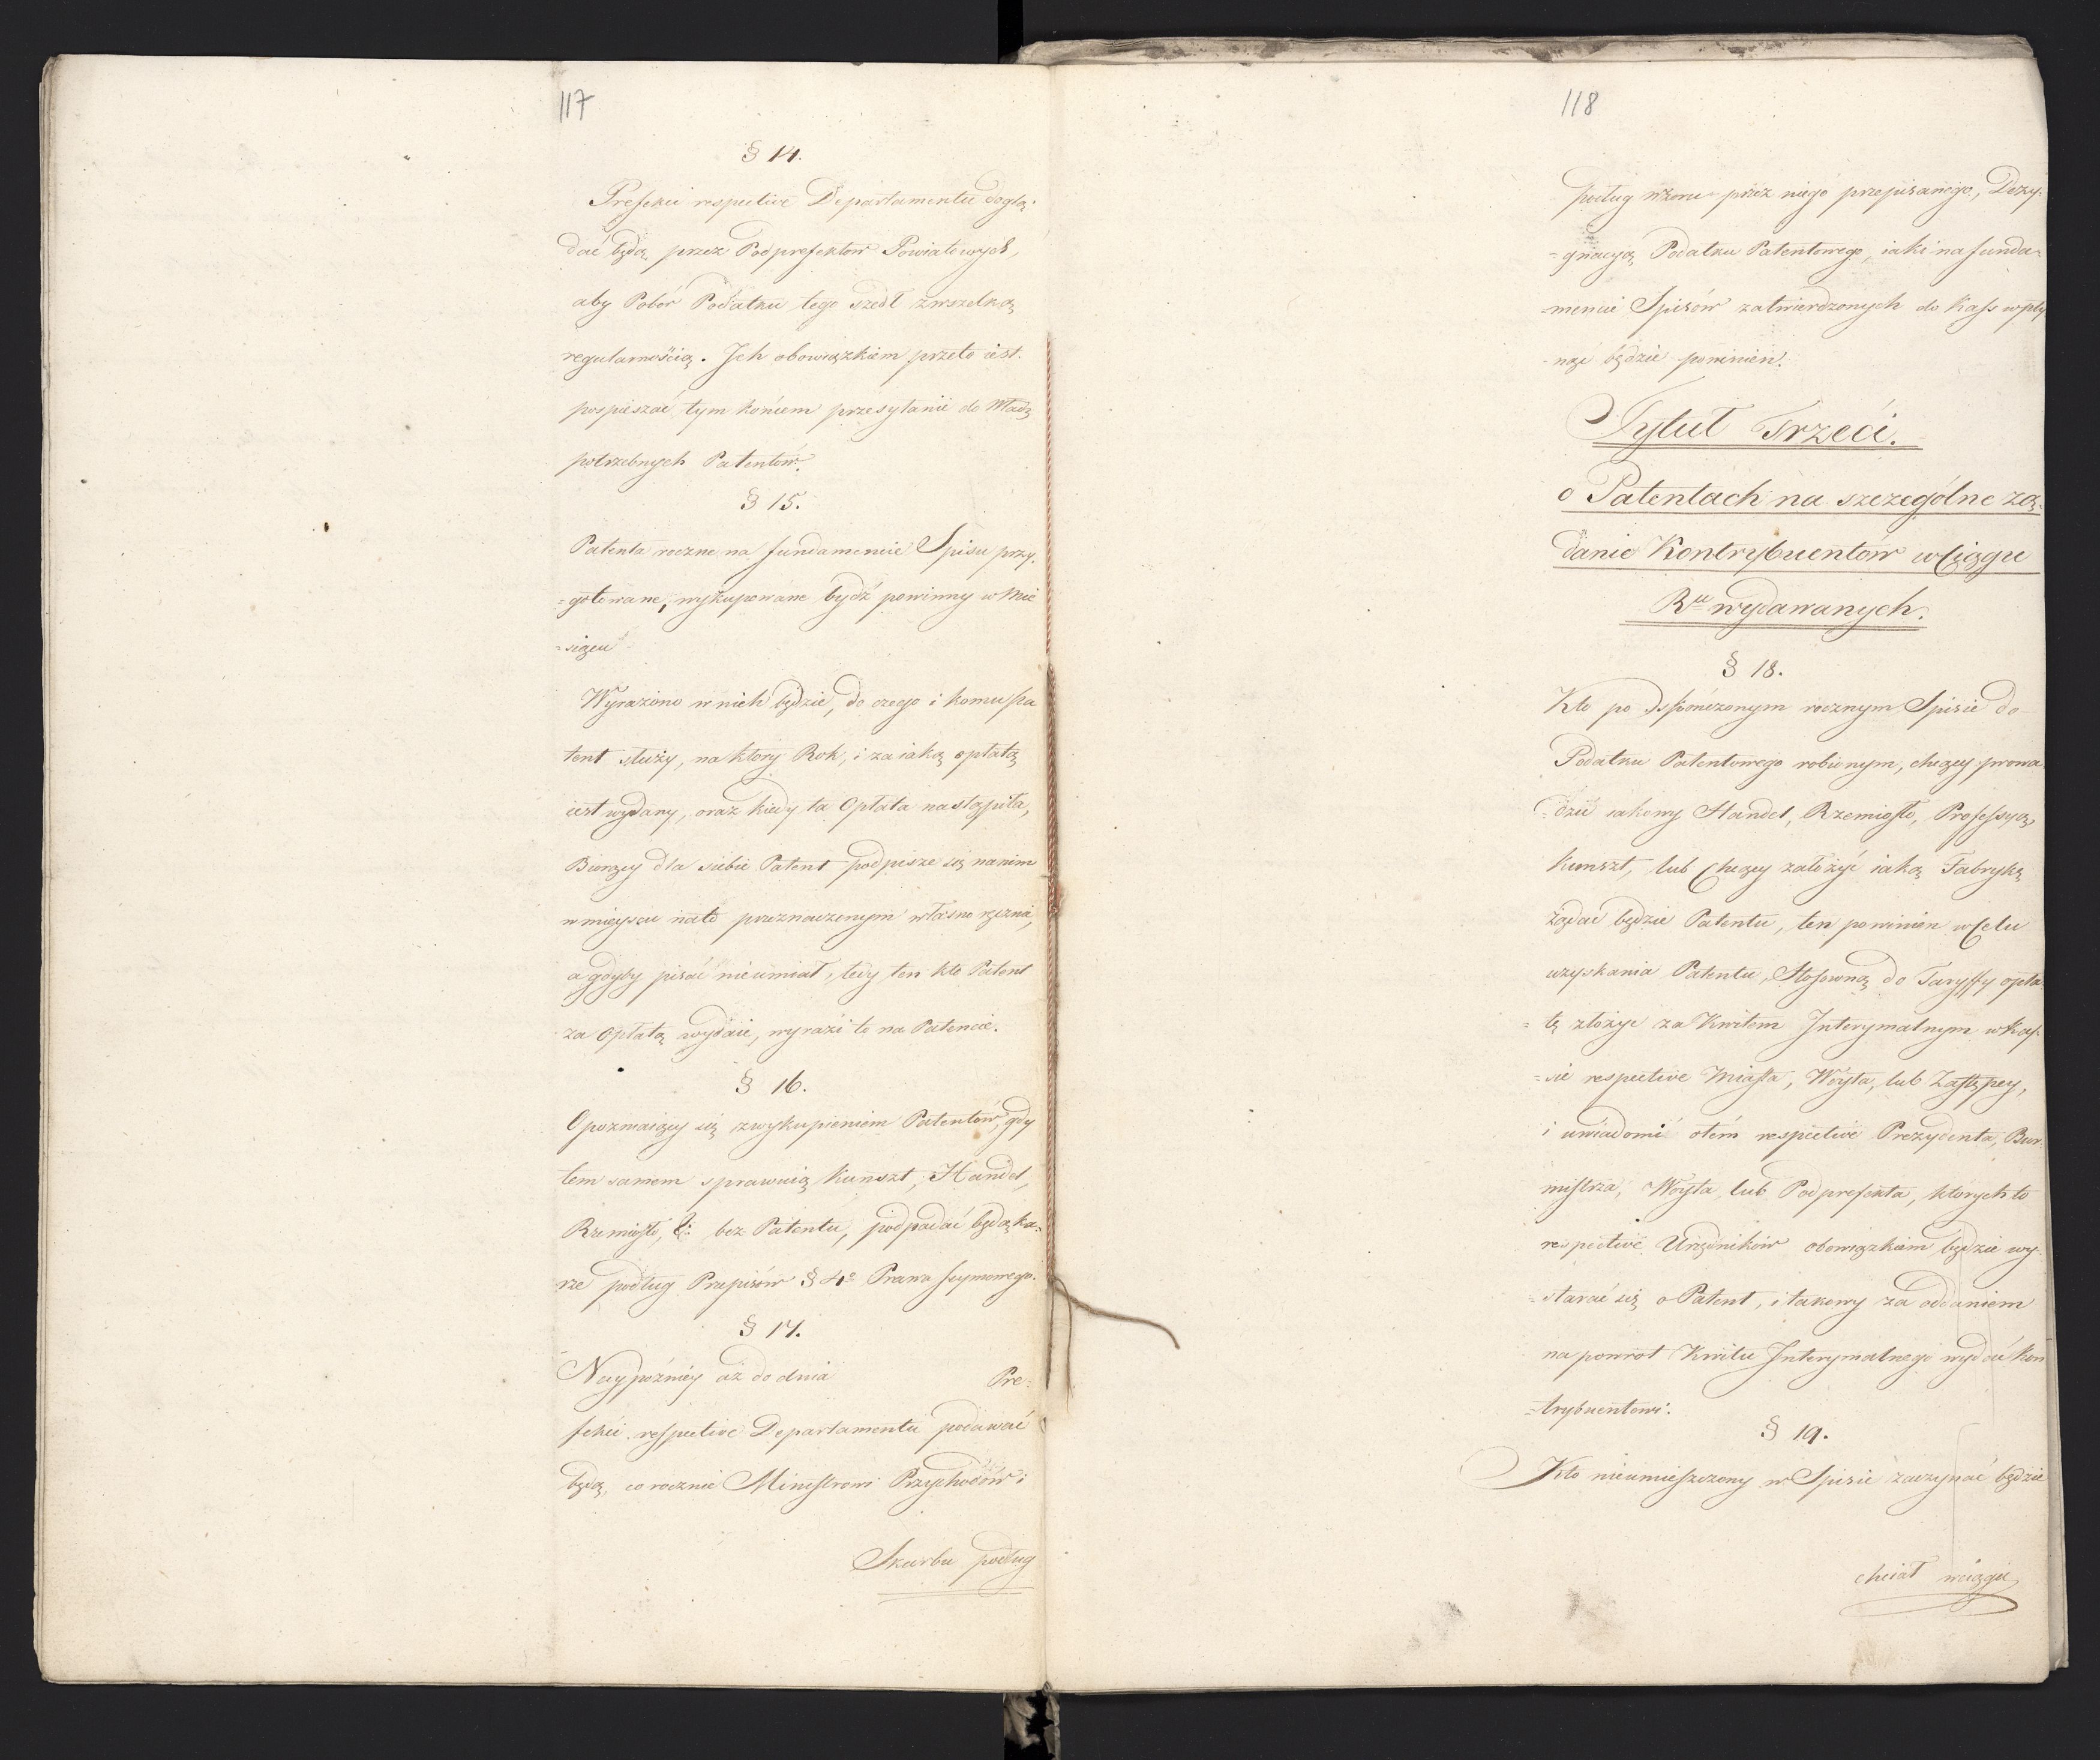 117
§ 14.
Prefekci respective Departamentu doglą-
dać będą, przez Podprefektow Powiatowych,
aby Pobór Podatku tego szedł zwszelką
regularnością. Jch obowiązkiem przeto iest.
pospieszać tym końcem przesyłanie do Władz
potrzebnych Patentów.
§ 15.
Patenta roczne na fundamencie Spisu przy-
=gotowane, wykupowane bydź powinny w Mie
=siącu
Wyrażono w nich będzie, do czego i komu pa
tent służy, na ktory Rok, i za iaką opłatą
iest wydany, oraz kiedy ta Opłata nastąpiła,
Biorący dla siebie Patent podpisze się na nim
w mieyscu nato przeznaczonym własno ręcznie,
a gdyby pisać nieumiał, tedy ten kto Patent
za Opłatą wydaie, wyrazi to na Patencie.
§ 16.
Opozniaiący się zwykupieniem Patentów, gdy
tem samem sprawuią Kunszt, Handel,
Rzemiosło, &: bez Patentu, podpadać będą ka-
rze podług Przepisów § 4º Prawa Seymowego.
§ 17.
Naypóżniey aż do dnia Pre-
fekci respective Departamentu podawać
będą, co rocznie Ministrowi Przychodów i
Skarbu podług
118
podług wzoru przez niego przepisanego, Dezy-
=gnacyą Podatku Patentowego, iaki na funda=
=mencie Spisów zatwierdzonych do Kass wpły
=nąć będzie powinien.
Tytuł Trzeci.
o Patentach na szczególne żą-
danie Kontrybuentów w Ciągu
Rku wydawanych.
§ 18.
Kto po uskończonym rocznym Spisie do
Podatku Patentowego robionym, chcący prowa
=dzić iakowy Handel, Rzemiosło, Professyą,
kunszt, lub Chcący założyć iaką Fabrykę
żądać będzie Patentu, ten powinien w Celu
uzyskania Patentu, Stosowną do Taryffy opła
=tę złożyć za Kwitem Jnterymalnym w kas-
=sie respective Miasta, Woyta, lub Zastępcy,
i uwiadomi otém respective Prezydenta, Bur-
mistrza, Woyta lub Podprefekta, ktorych to
respective Urzędników obowiązkiem będzie wy-
=starać się o Patent, i takowy za oddaniem
na powrot Kwitu Jnterymalnego wydać Kon
=trybuentowi.
§ 19.
Kto nieumieszczony w Spisie zaczynać będzie
chciał wciągu